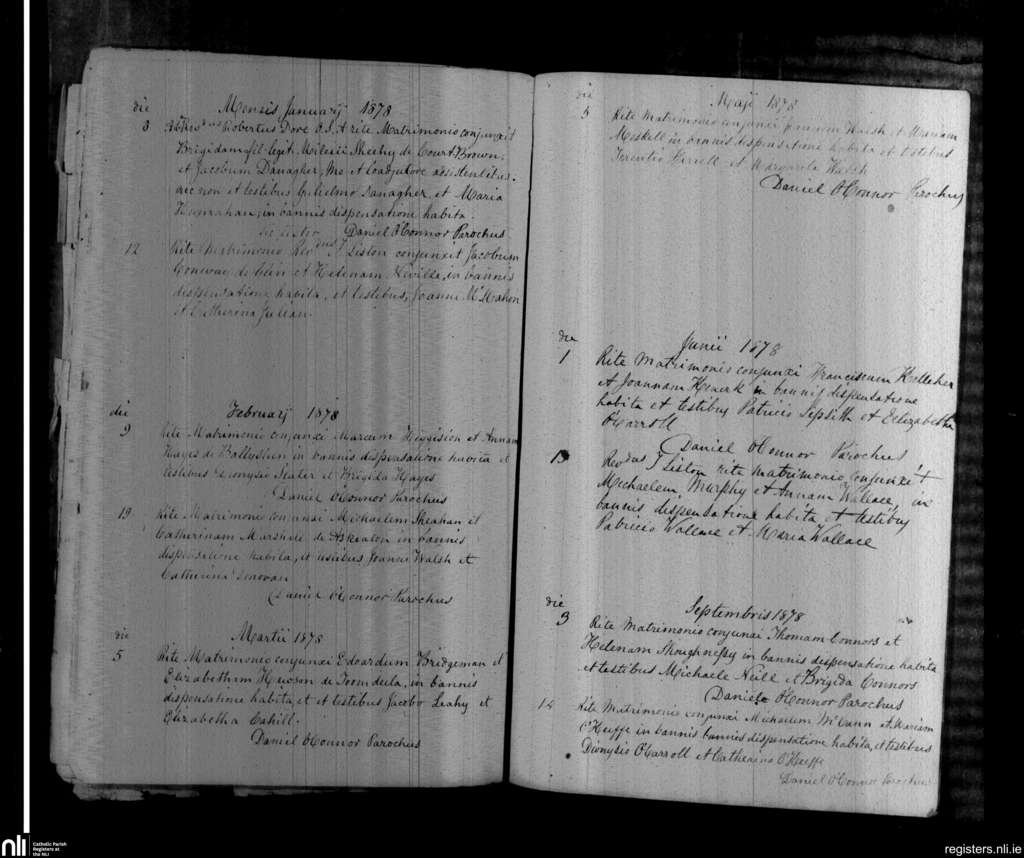 die
Mensis Januarij 1878
8 Robertus Dore O.S.A rite Matrimonio conjunxit
Brigidam fil. legit. Milesii Sheehy de Court Brown,
et Jacobum Danagher, Me et Coadjutore assistentibus,
nec non et testibus Gulielmo Danagher et Maria
in bannis dispensatione habita.
Daniel O'Connor Parochus
12 Rite Matrimonio Revdus J Liston conjunxit Jacobum
Conway de Glin et Helenam Neville, in bannis
dispensatione habita, et testibus, Joanne McMahon
et Catherina Julian.
die
Februarij 1878
9 Rite Matrimonio conjunxi Marcum Higgision et Annam
Hayes de in bannis dispensatione habita et
testibus Dionysio Slater et Brigida Hayes
Daniel O'Connor Parochus
19 Rite Matrimonio conjunxi Michaelem Sheahan et
Catherinam de Askeaton in bannis
dispensatione habita, et testibus Joanne Walsh et
Catherina Donovan
Daniel O'Connor Parochus
die
Martii 1878
5 Rite Matrimonio conjunxi Edoardum Bridgeman et
Elizabetham Hewson de in bannis
dispensatione habita et et testibus Jacobo Leahy et
Elizabetha Cahill.
Daniel O'Connor Parochus
die
Maji 1878
5 Rite Matrimonio conjunxi Joannem Walsh et Mariam
Meskell in bannis dispensatione habita et testibus
Terentio et Margarita Walsh
Daniel O'Connor Parochus
die
Junii 1878
1 Rite Matrimonio conjunxi Franciscum Kelleher
et Joannam in bannis dispensatione
habita et testibus Patricio et Elizabetha
O'Carroll
Daniel O'Connor Parochus
13 Revdus J Liston rite matrimonio conjunxit
Michaelem Murphy et Annam Wallace, in
bannis dispensatione habita, et testibus
Patricio Wallace et Maria Wallace
die
Septembris 1878
3 Rite Matrimonio conjunxi Thomam Connors et
Helenam Shoughnessy in bannis dispensatione habita
et testibus Michaele Neill et Brigida Connors
Daniel O'Connor Parochus
14 Rite Matrimonio conjunxi Michaelem McCann et Mariam
O'Keeffe in bannis bannis dispensatione habita, et testibus
Dionysio O'Carroll et Catherina O'Keeffe
Daniel O'Connor Parochus
nli
Catholic Parish
Registers at
the NLI
registers.nli.ie